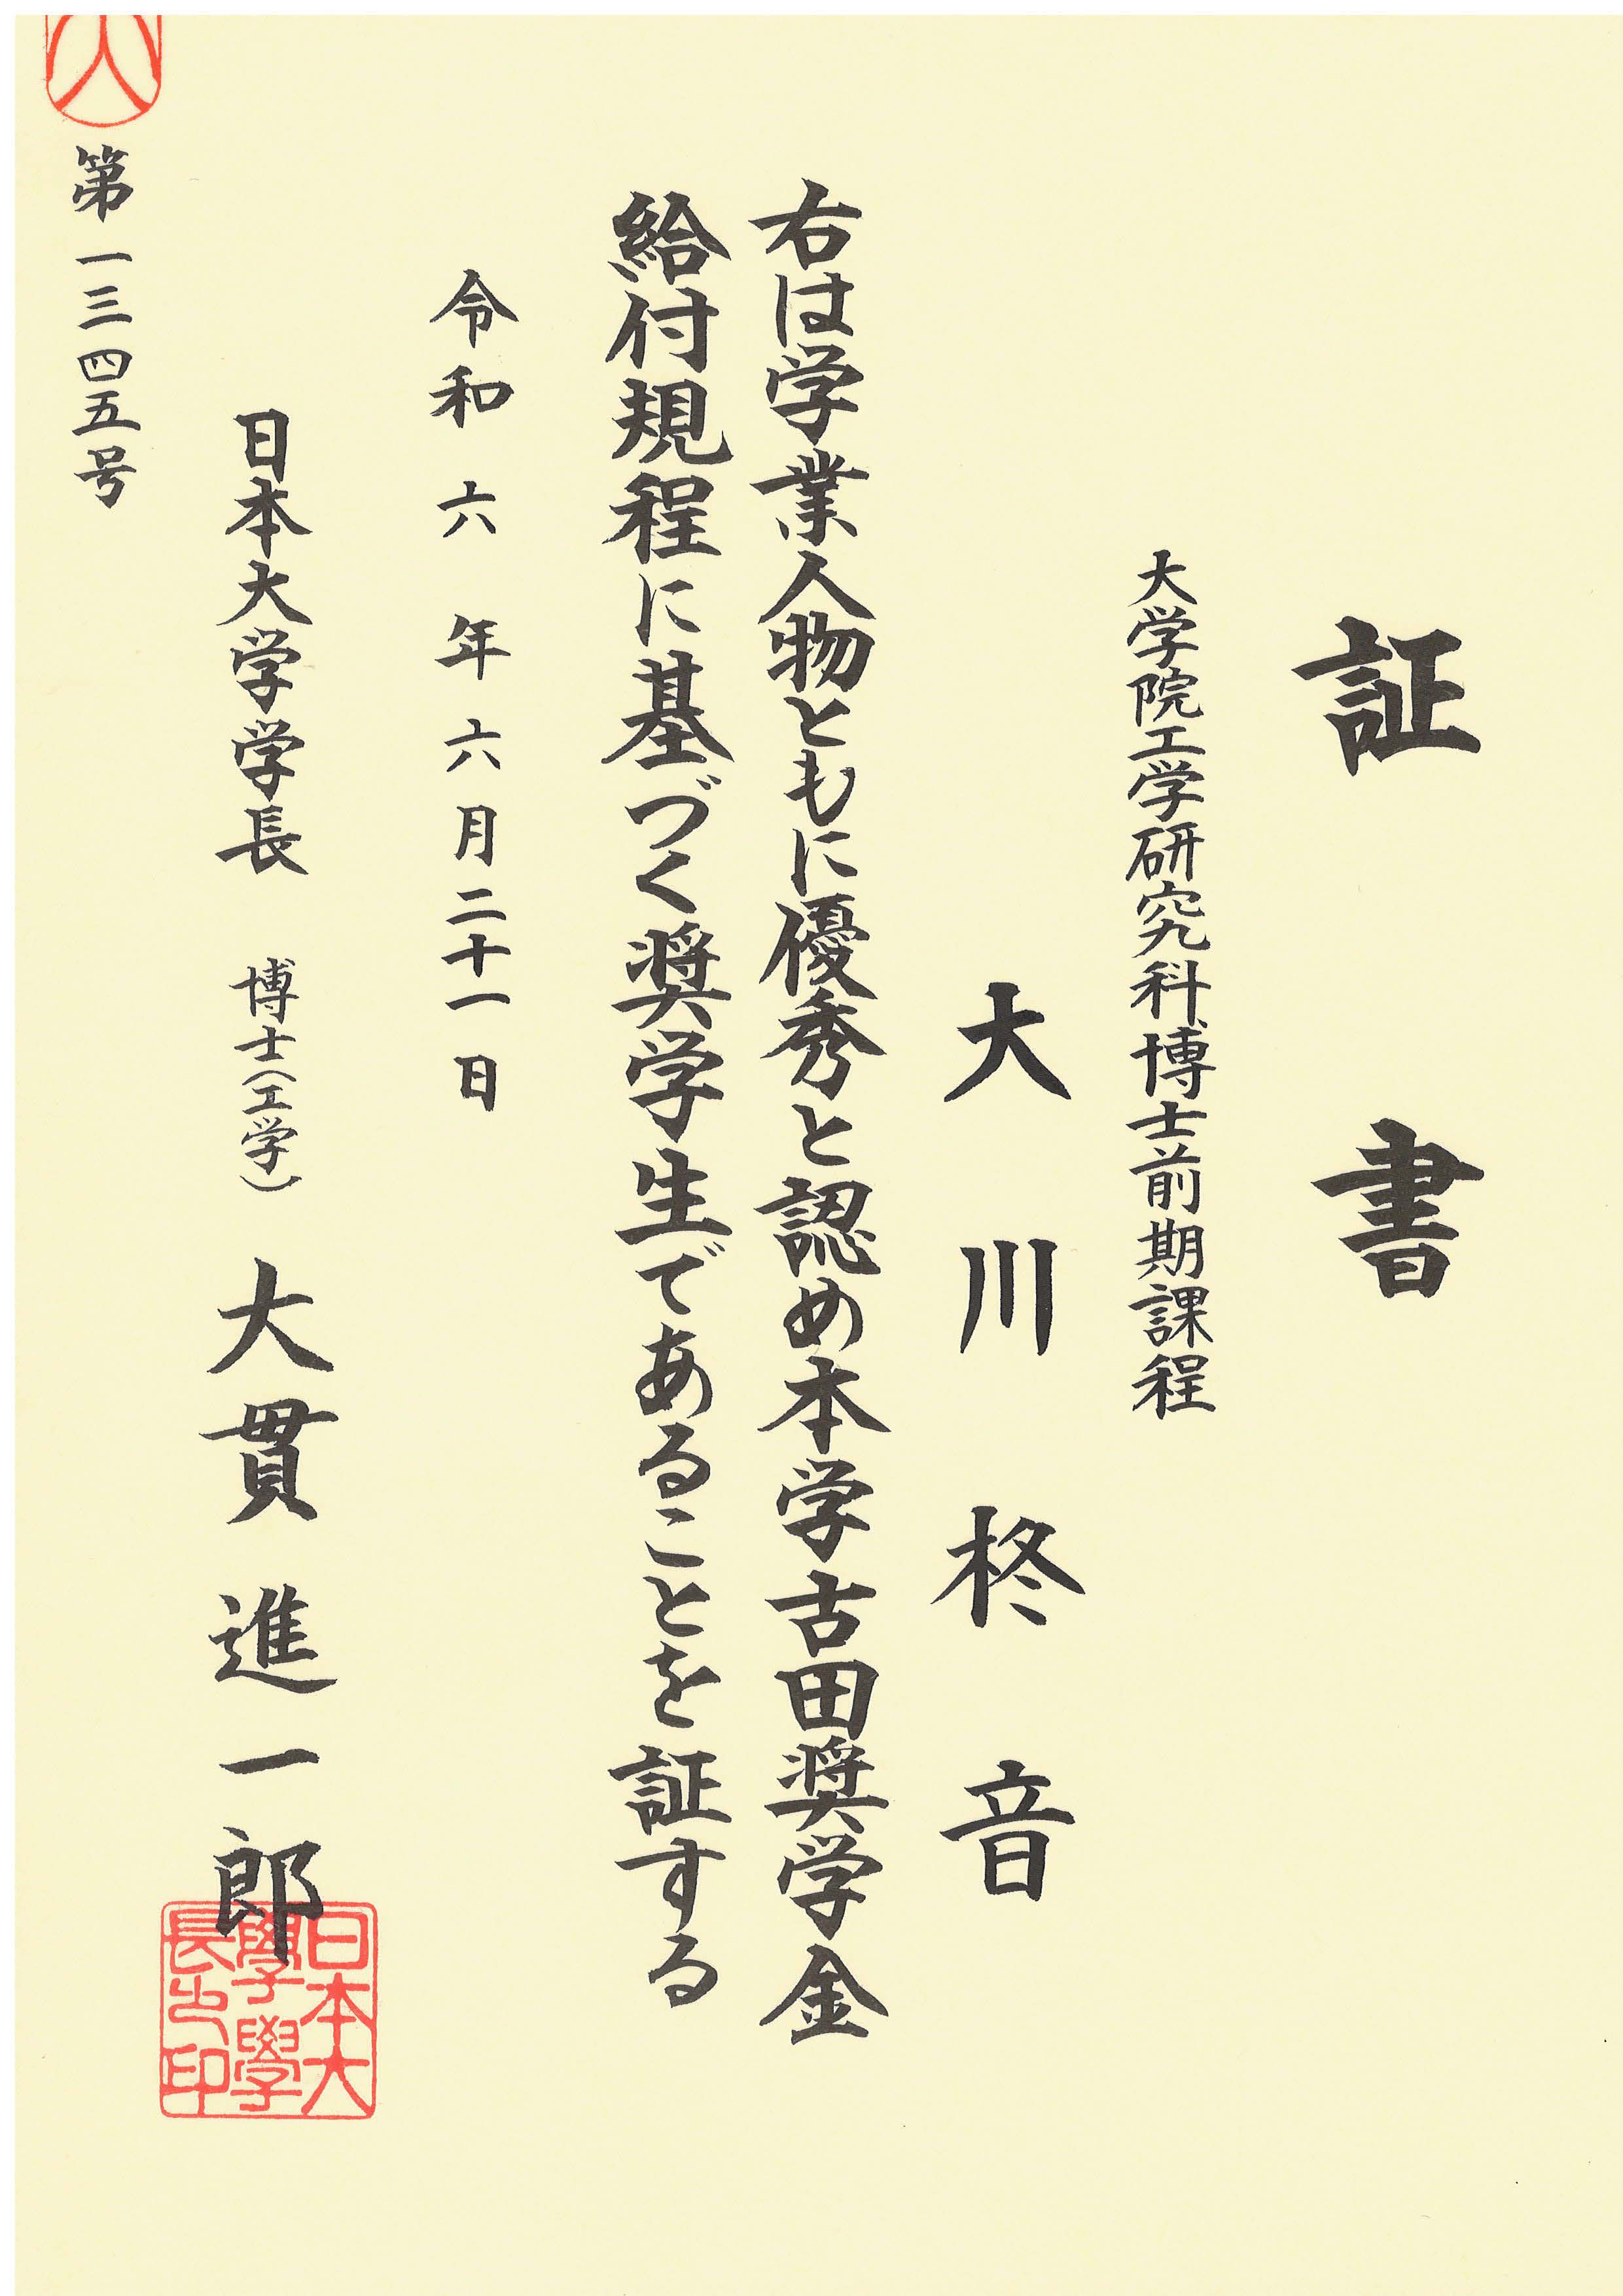 証書
大学院工学研究科博士前期課程
大川柊音
右は学業人物ともに優秀と認め本学古田奨学金
給付規程に基づく奨学生であることを証する
令和六年六月二十一日
日本大学学長 博士(工学) 大貫進一郎
日本大
學學
長之印
第一三四五号